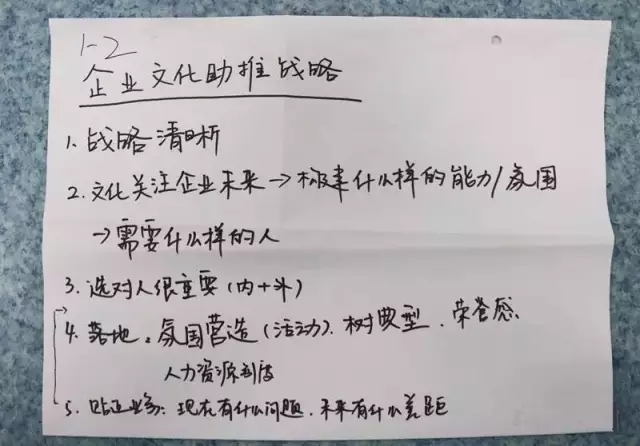 1-2
企业文化助推战略
1. 战略清晰
2. 文化关注企业未来→构建什么样的能力/氛围
→需要什么样的人
3. 选对人很重要(内+外)
4. 落地:氛围营造(活动)、树典型、荣誉感
人力资源制度
5. 贴近业务:现在有什么问题、未来有什么差距